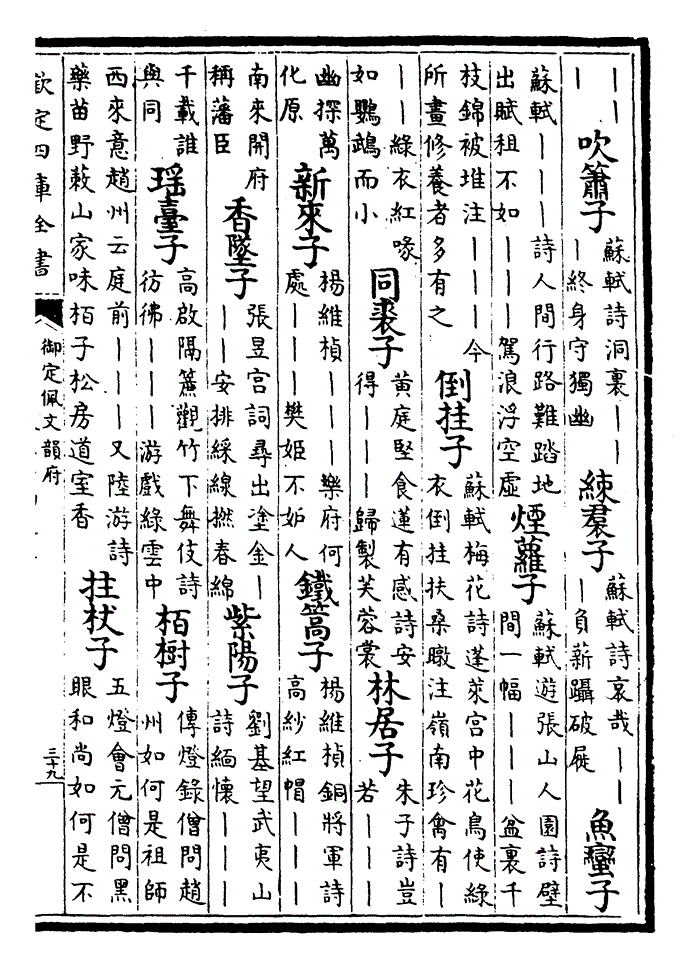 ｜｜
｜
吹簫子
蘇軾詩洞裏｜｜
｜終身守獨幽
練帬子
蘇軾詩哀哉｜｜
｜負薪躡破屐
魚蠻子
蘇軾｜｜｜詩人間行路難踏地
出賦租不如｜｜｜駕浪浮空虛
煙蘿子
蘇軾遊張山人園詩壁
間一幅｜｜｜盆裏千
枝錦被堆注｜｜｜今
所畫修養者多有之
倒挂子
蘇軾梅花詩蓬萊宫中花鳥使綠
衣倒挂扶桑暾注嶺南珍禽有｜
｜｜綠衣紅喙
如鸚鵡而小
同裘子
黄庭堅食蓮有感詩安
得｜｜｜歸製芙蓉裳
林居子
朱子詩豈
若｜｜｜
幽探萬
化原
新來子
楊維楨｜｜｜樂府何
處｜｜｜樊姬不妒人
鐵篙子
楊維楨銅將軍詩
高紗紅帽｜｜｜
南來開府
稱藩臣
香墜子
張昱宫詞尋出塗金｜
｜｜安排綵線撚春綿
紫陽子
劉基望武夷山
詩緬懷｜｜｜
千載誰
與同
瑶臺子
高啟隔簾觀竹下舞伎詩
彷彿｜｜｜游戲綠雲中
栢樹子
傳燈錄僧問趙
州如何是祖師
西來意趙州云庭前｜｜｜又陸游詩
藥苗野蔌山家味栢子松房道室香
拄杖子
五燈會元僧問黑
眼和尚如何是不
欽定四庫全書
御定佩文韻府
三十九